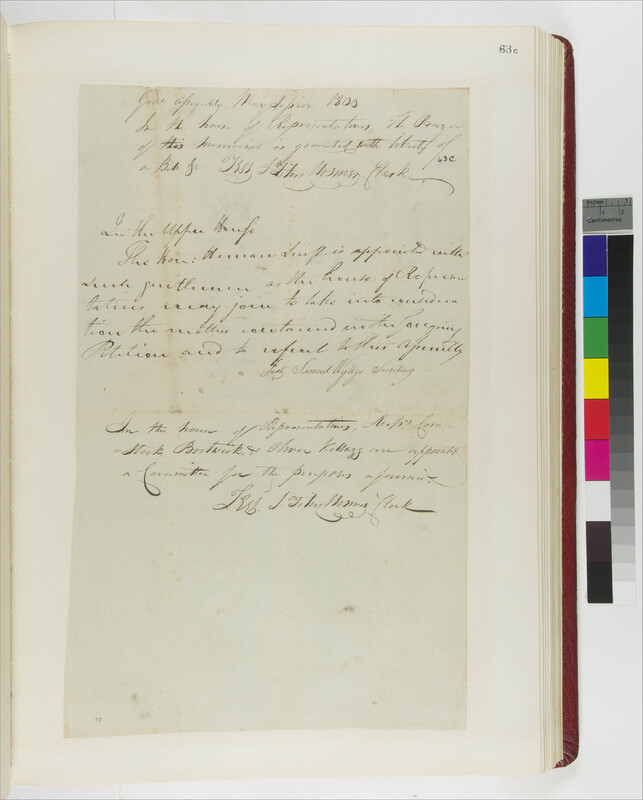 63c
Genl Assembly May Session 1800
In the house of Representatives, The Prayer
of this memorial is granted with liberty of
a Bill &c Test Clerk
63C
In the Upper House
The Hon: Heman Swift is appointed with
such gentlemen as the house of Represen
tatives may join to take into considera
tion the matter contained in the foregoing
Petition and to report to this Assembly
Test Samuel Wyllys Secretary
In the house of Representatives, Messrs Com
stock Bostwick, & Oliver Kellogg are appointed
a Committee for the purposes aforesaid
Test Clerk
Inches
Centimetres